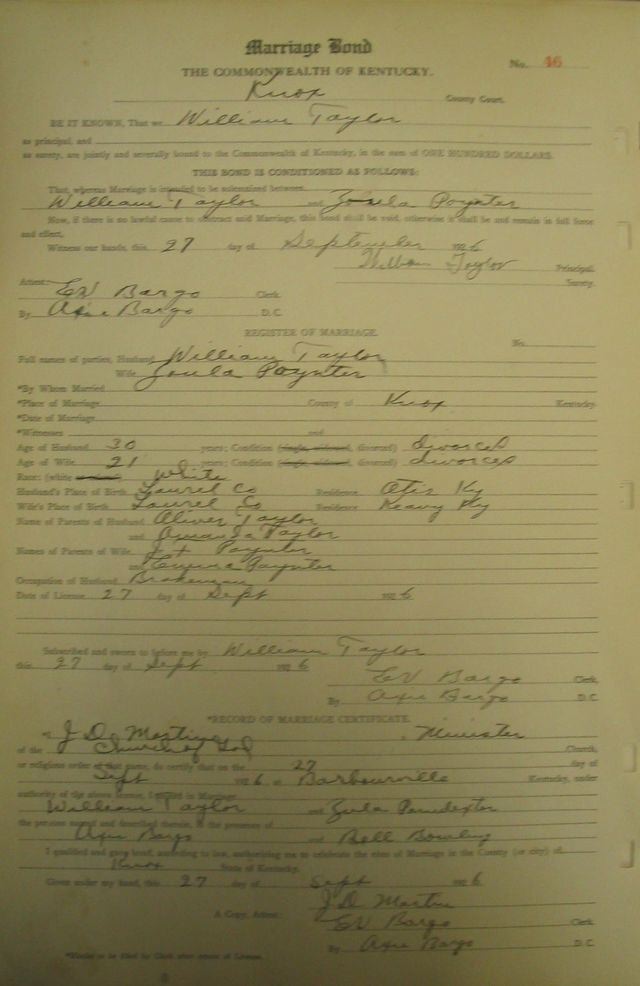 Marriage Bond
No. 46
THE COMMONWEALTH OF KENTUCKY.
Knox County Court.
BE IT KNOWN, That we William Taylor
as principal, and
as surety, are jointly and severally bound to the Commonwealth of Kentucky, in the sum of ONE HUNDRED DOLLARS.
THIS BOND IS CONDITIONED AS FOLLOWS:
That, whereas Marriage is intended to be solemnized between
William Taylor and Poynter
Now, if there is no lawful cause to obstruct said Marriage, this bond shall be void, otherwise it shall be and remain in full force
and effect.
Witness our hands, this 27 day of September 1926
Taylor Principal.
Surety.
Attest:
EV Bargo Clerk.
By Bargo D.C.
REGISTER OF MARRIAGE.
No.
Full names of parties, Husband, William Taylor
Wife, Poynter
*By Whom Married
*Place of Marriage County of Knox Kentucky.
*Date of Marriage
*Witnesses and
Age of Husband 30 years; Condition (single, widowed, divorced) divorced
Age of Wife 21 years; Condition (single, widowed, divorced) divorced
Race: (white white
Husband's Place of Birth Laurel Co Residence Otis Ky
Wife's Place of Birth Laurel Co Residence Ky
Name of Parents of Husband Oliver Taylor
and Amanda Taylor
Names of Parents of Wife Poynter
and Poynter
Occupation of Husband Brakeman
Date of License 27 day of Sept 1926
Subscribed and sworn to before me by William Taylor
this 27 day of Sept 1926
EV Bargo Clerk.
By Bargo D.C.
*RECORD OF MARRIAGE CERTIFICATE.
I, J D Martin Minister
of the Church of God Church,
or religious order of that name, do certify that on the 27 day of
Sept 1926 at Barbourville Kentucky, under
authority of the above license, I united in Marriage
William Taylor and Poindexter
the persons named and described therein, in the presence of
Bargo and Bell
I qualified and gave bond, according to law, authorizing me to celebrate the rites of Marriage in the County (or city) of
Knox State of Kentucky.
Given under my hand, this 27 day of Sept 1926
J D Martin
A Copy, Attest: EV Bargo Clerk.
By Bargo D.C.